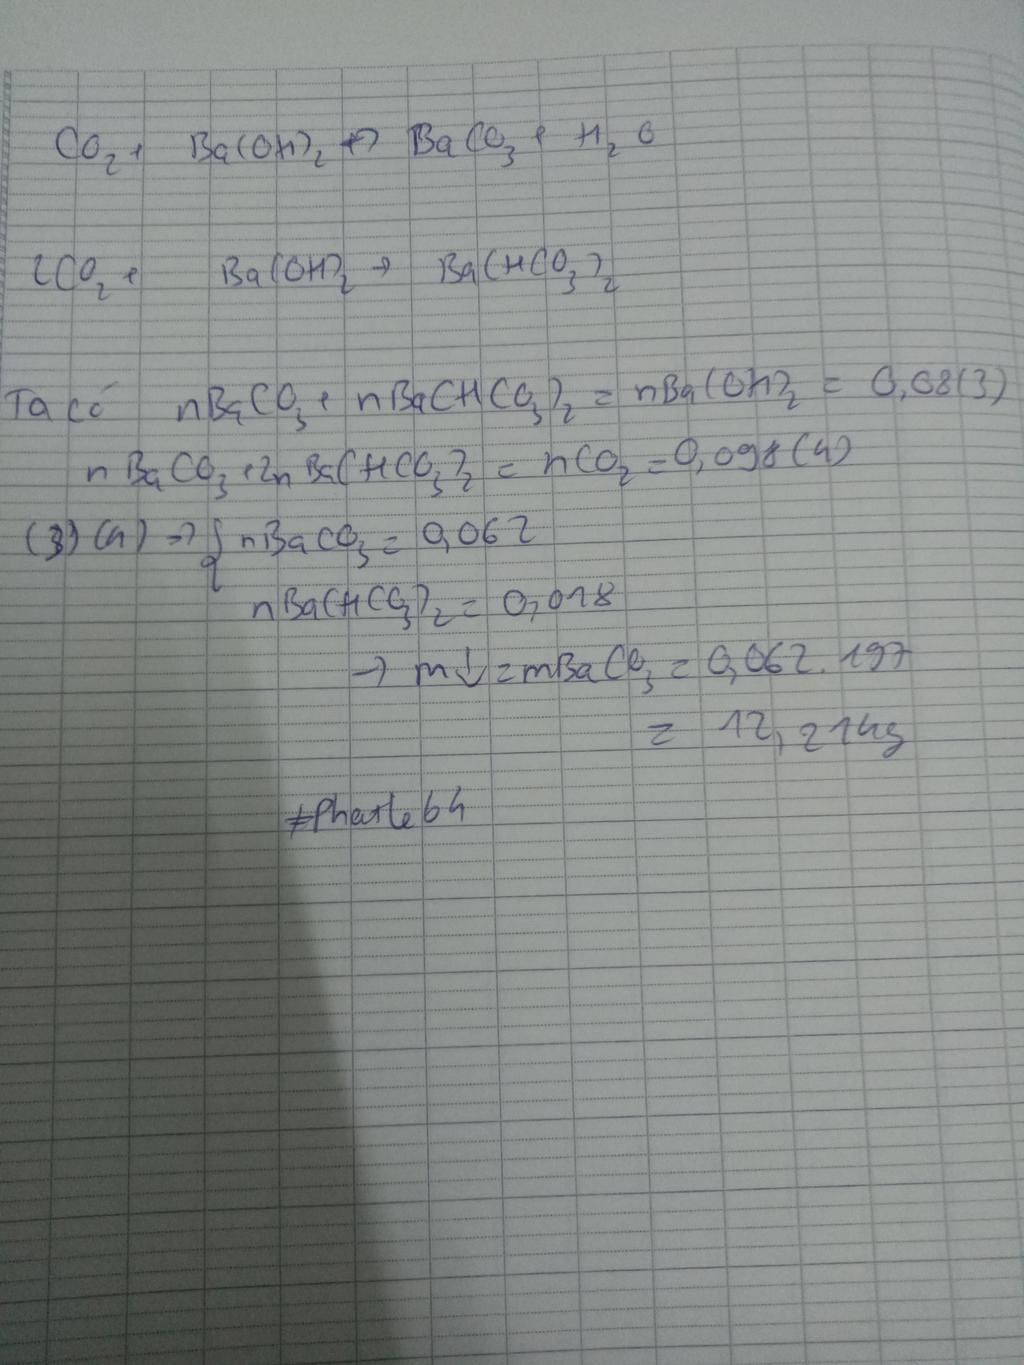 CO₂ + Ba(OH)₂ → BaCO₃ + H₂O
2CO₂ + Ba(OH)₂ → Ba(HCO₃)₂
Ta có nBaCO₃ + nBa(HCO₃)₂ = nBa(OH)₂ = 0,08 (3)
nBaCO₃ + 2nBa(HCO₃)₂ = nCO₂ = 0,098 (4)
(3) (4) → { nBaCO₃ = 0,062
nBa(HCO₃)₂ = 0,018
→ m↓ = mBaCO₃ = 0,062 . 197
= 12,214g